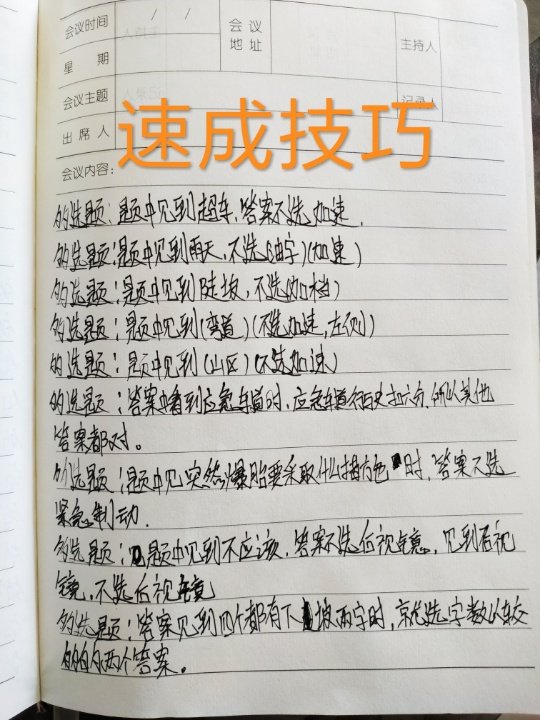 会议时间 / / 会议地址 主持人
星期
会议主题 记录人
出席人
速成技巧
会议内容:
多选题:题中见到超车,答案不选加速.
多选题:题中见到雨天,不选(油字)(加速)
多选题:题中见到陡坡,不选(加档)
多选题:题中见到(弯道)(不选加速,左侧)
多选题:题中见到(山区)(不选加速)
多选题:答案中看到应急车道时,应急车道行,所以其他
答案都对。
多选题:题中见突然爆胎要采取什么措施时,答案不选
紧急制动.
多选题:题中见到不应该,答案不选后视镜,见到后视
镜,不选后视镜
多选题:答案见到四个都有下坡两字时,就优选字数比较
多的两个答案。